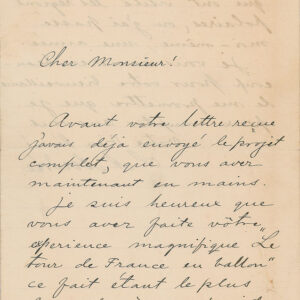 Cher Monsieur!
Avant votre lettre reçue
j'avais déjà envoyé le projet
complet, que vous avez
maintenant en mains.
Je suis heureux que
vous avez faite vôtre
experience magnifique "Le
tour de France en ballon"
ce fait étant le plus